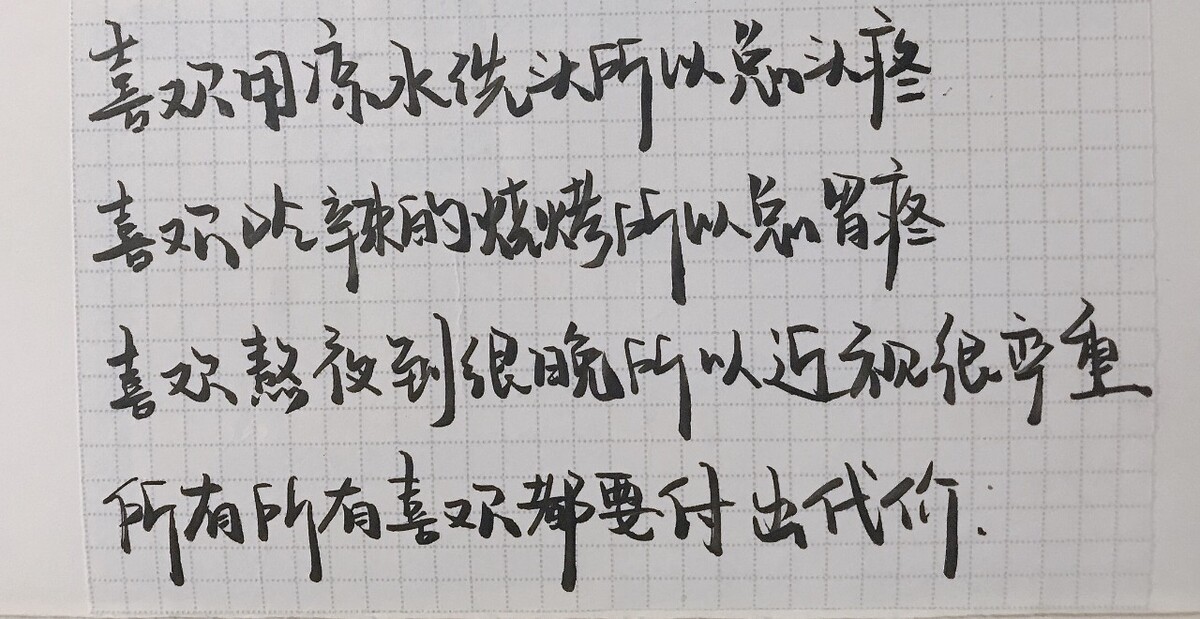 喜欢用凉水洗头所以总头疼
喜欢吃辣的烧烤所以总胃疼
喜欢熬夜到很晚所以近视很严重
所有所有喜欢都要付出代价.